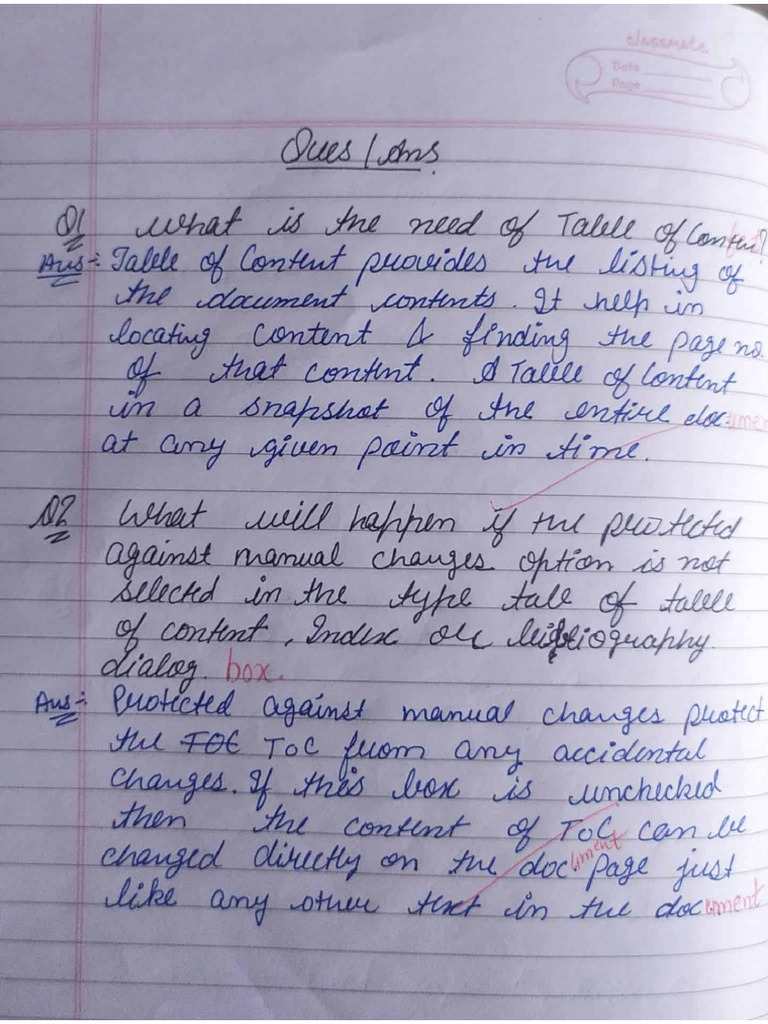 classmate
Date
Page
Ques/Ans.
Q1 What is the need of Table of Content?
Ans:- Table of Content provides the listing of
the document contents. It help in
locating content & finding the page no.
of that content. A Table of Content
in a snapshot of the entire document
at any given point in time.
Q2 What will happen if the protected
against manual changes option is not
selected in the type tab of table
of content, Index or bibliography
dialog. box.
Ans:- Protected against manual changes protect
the TOC ToC from any accidental
changes. If this box is unchecked
then the content of ToC can be
changed directly on the document page just
like any other text in the document